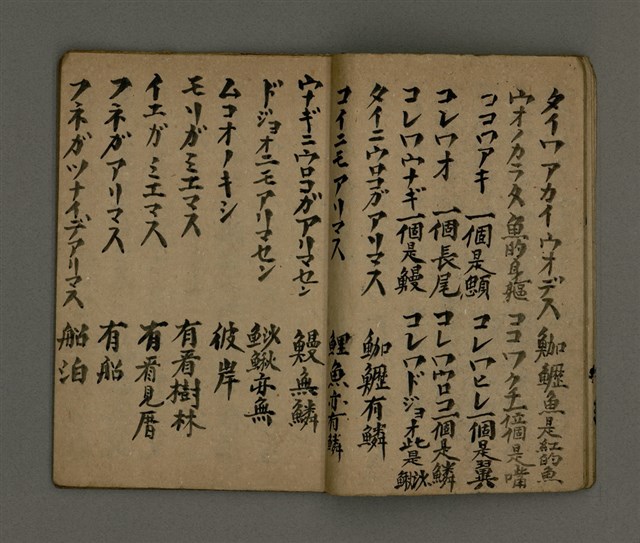 タイワアカイウオデス 魚加魚歷魚是紅的魚
ウオノカラダ 魚的身軀 ココワクチ 位個是嘴
ココワアキ 一個是顋 コレワヒレ 一個是翼
コレワオ 一個長尾 コレワウロコ 一個是鱗
コレワウナギ 一個是鰻 コレワドジョオ 此是
タイニウロコガアリマス 有鱗
コイニモアリマス 鯉魚亦有鱗
ウナギニウロコガアリマセン 鰻無鱗
ドジョオニモアリマセン 鰍亦無
ムコオノキシ 彼岸
モリガミエマス 有看樹林
イエガミエマス 有看見厝
フネガアリマス 有船
フネガツナイデアリマス 船泊